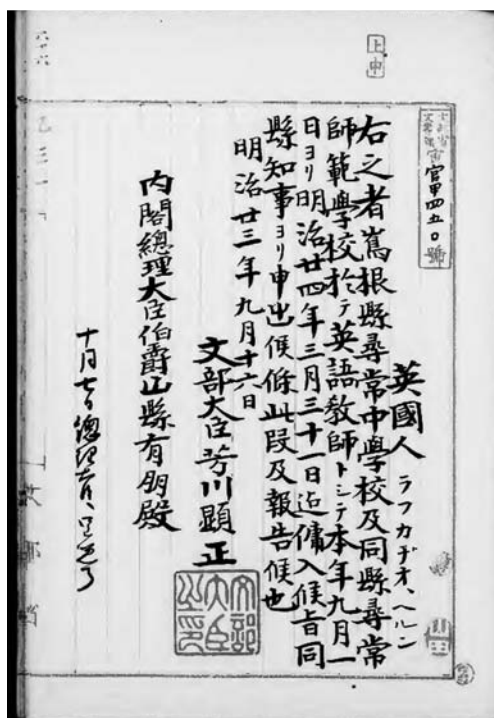 上申
官甲四五〇號
英國人
ラフカヂオ、ヘルン
右之者嶌根縣尋常中學校及同縣尋常
師範學校於テ英語教師トシテ本年九月一
日ヨリ明治廿四年三月三十一日迄傭入候旨同
縣知事ヨリ申出候條此段及報告候也
明治廿三年九月十六日
文部大臣芳川顯正
文部大臣之印
內閣總理大臣伯爵山縣有朋殿
十月七日總理